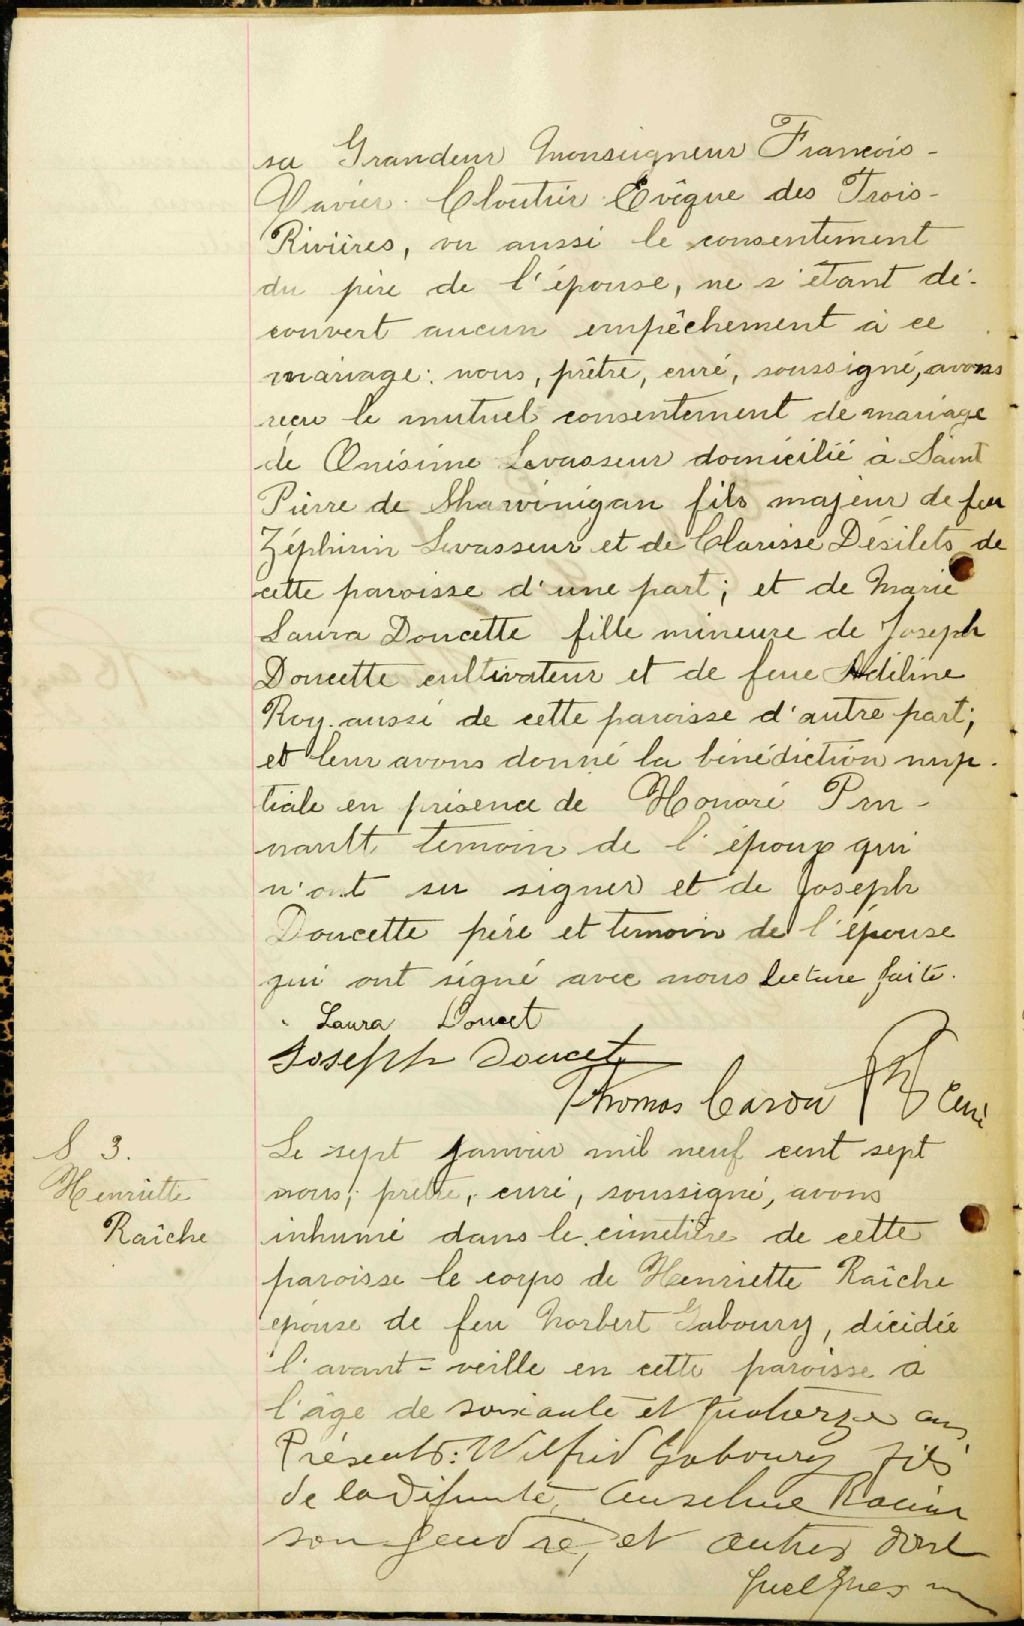 sa Grandeur Monseigneur François-
Xavier Cloutier Evêque des Trois-
Rivières, vu aussi le consentement
du père de l'épouse, ne s'étant dé-
couvert aucun empêchement à ce
mariage: nous, prêtre, curé, soussigné, avons
reçu le mutuel consentement de mariage
de Onésime Levasseur domicilié à Saint
Pierre de Shawinigan fils majeur de feu
Zéphirin Levasseur et de Clarisse Désilets de
cette paroisse d'une part; et de Marie
Laura Doucette fille mineure de Joseph
Doucette cultivateur et de feue Adéline
Roy aussi de cette paroisse d'autre part;
et leur avons donné la bénédiction nup-
tiale en présence de Honoré
témoin de l'époux qui
n'ont su signer et de Joseph
Doucette père et témoin de l'épouse
qui ont signé avec nous lecture faite.
Laura Doucet
Joseph Doucet
Thomas Caron Ptre Curé
S 3.
Henriette
Raîche
Le sept janvier mil neuf cent sept
nous, prêtre, curé, soussigné, avons
inhumé dans le cimetière de cette
paroisse le corps de Henriette Raîche
épouse de feu Norbert Gaboury, décédée
l'avant-veille en cette paroisse à
l'âge de soixante et quatorze ans
Présents: Wilfrid Gaboury fils
de la défunte, Anselme Racine
son gendre, et autres dont
quelques